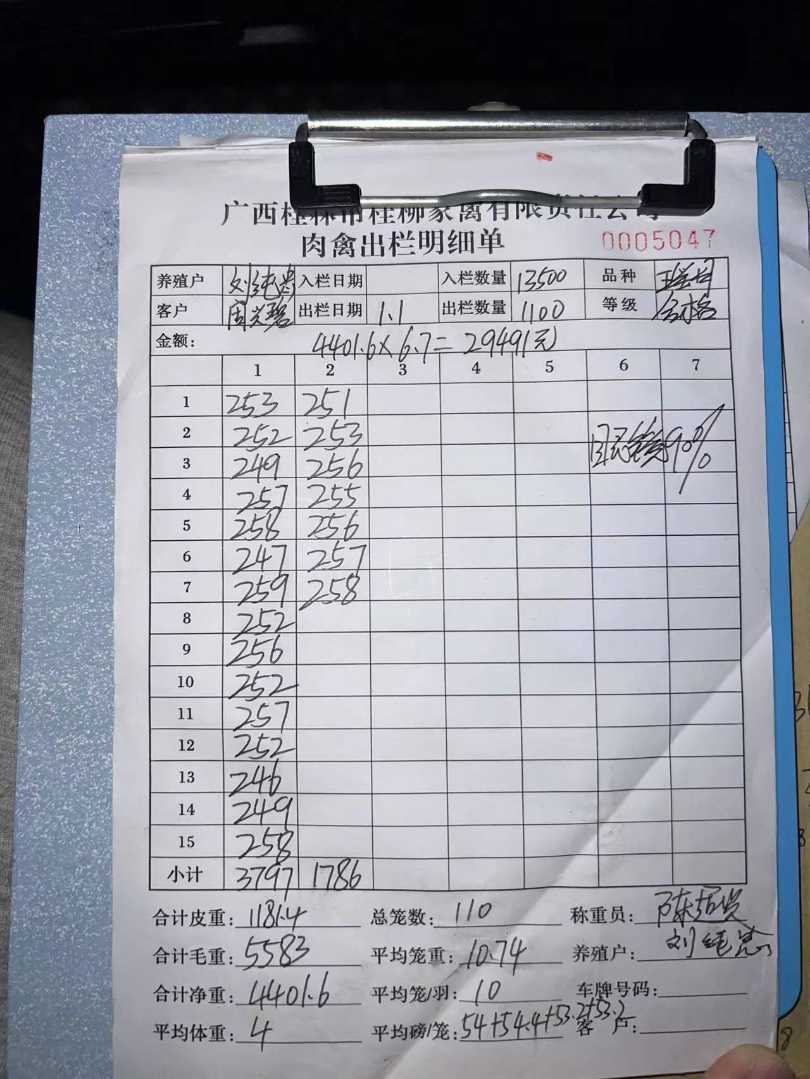 广西桂林市桂柳家禽有限责任公司
肉禽出栏明细单 0005047
养殖户 入栏日期 入栏数量 13500 品种
客户 出栏日期 1.1 出栏数量 1100 等级 合格
金额: 4401.6×6.7=29491元
1 2 3 4 5 6 7
1 253 251
2 252 253 90%
3 249 256
4 257 255
5 258 256
6 247 257
7 259 258
8 252
9 256
10 252
11 257
12 252
13 246
14 249
15 258
小计 3797 1786
合计皮重: 1181.4 总笼数: 110 称重员:
合计毛重: 5583 平均笼重: 10.74 养殖户:
合计净重: 4401.6 平均笼/羽: 10 车牌号码:
平均体重: 4 平均磅/笼: 54+54.4+53.2+53.2 客户: